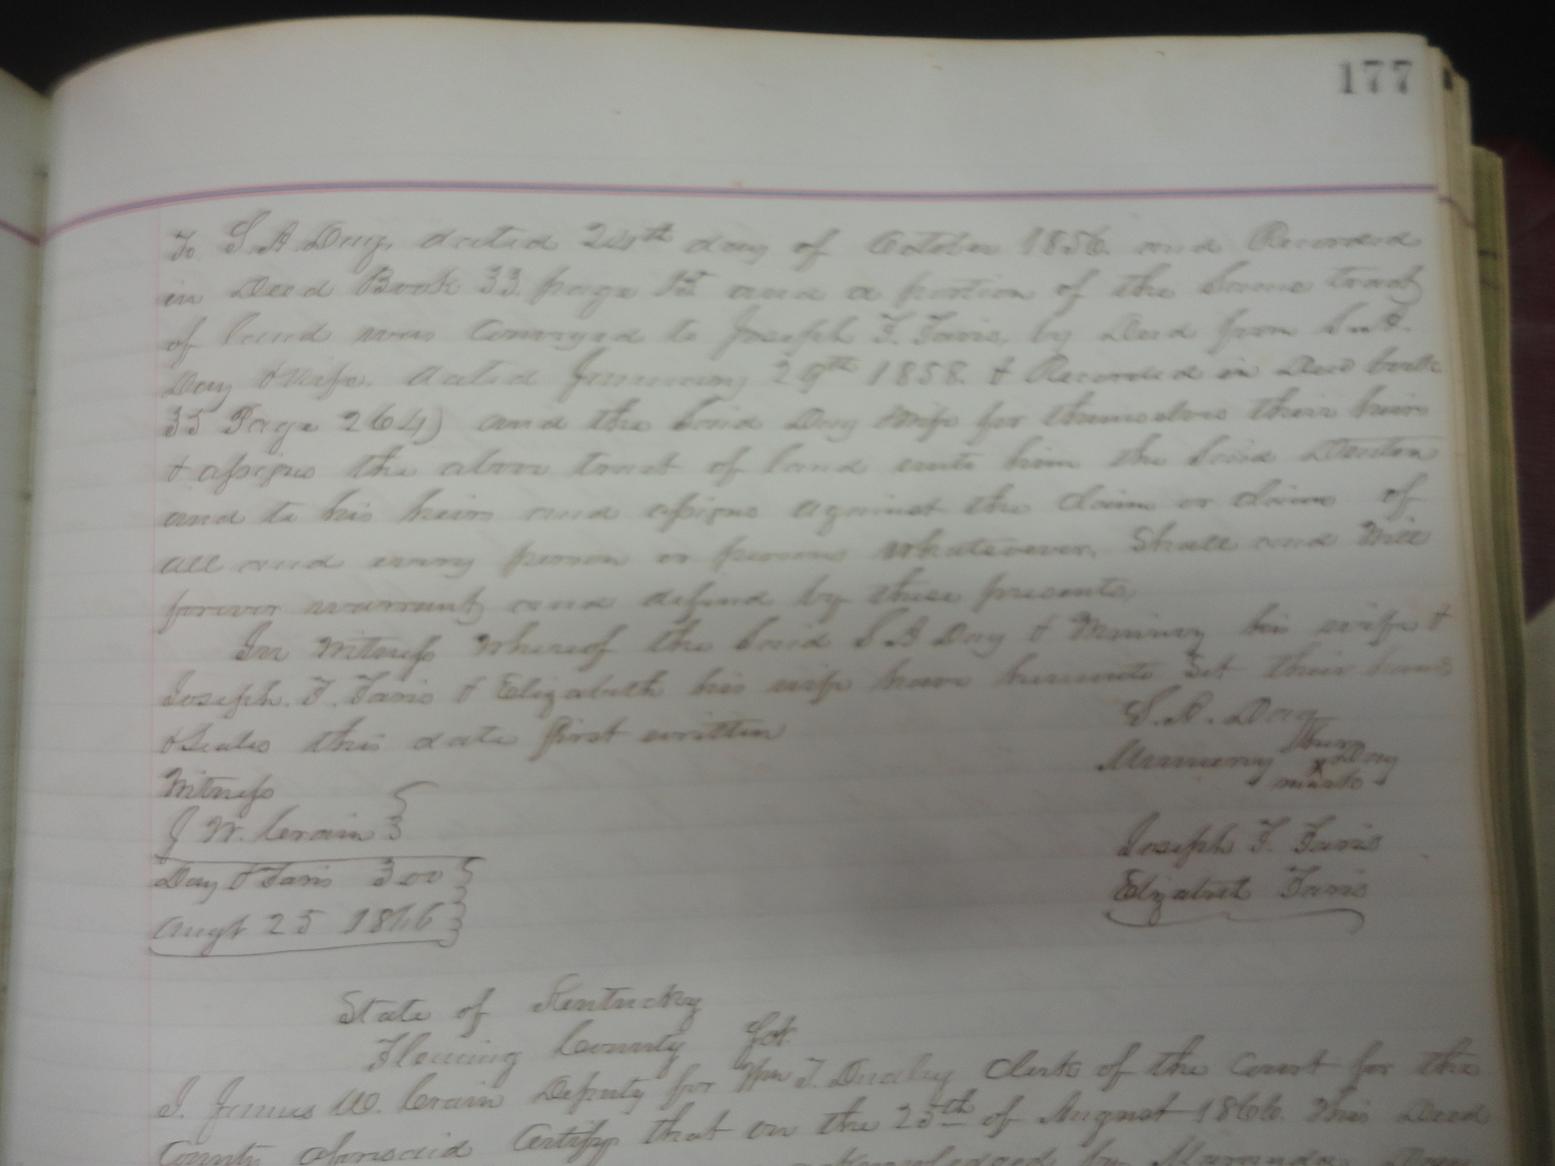 177
To S. A. Day, dated 24th day of October 1856. and Recorded
in Deed Book 33. page and a portion of the Same tract
of land was Conveyed to Joseph F. Faris, by Deed from S. A.
Day & Wife. dated January 29th 1858. & Recorded in Deed book
35 Page 264) and the Said Day Wife for themselves their heirs
& assigns the above tract of land unto him the Said Denton
and to his heirs and assigns against the Claim or Claims of
all and every person or persons whatsoever. Shall and Will
forever warrant and defend by these presents,
In Witness Whereof the Said S A Day & his wife &
Joseph. F. Faris & Elizabeth his wife have hereunto Set their hands
& Seals this date first written
S. A. Day
her
Day
x
mark
Witness
J W. Crain
Joseph F. Faris
Day & Faris 300
Elizabeth Faris
Augt 25 1866
State of Kentucky
Fleming County Sct
I. James W. Crain Deputy for Wm T. Dudley Clerk of the Court for the
County aforesaid Certify that on the 25th of August 1866. This Deed
acknowledged by Day